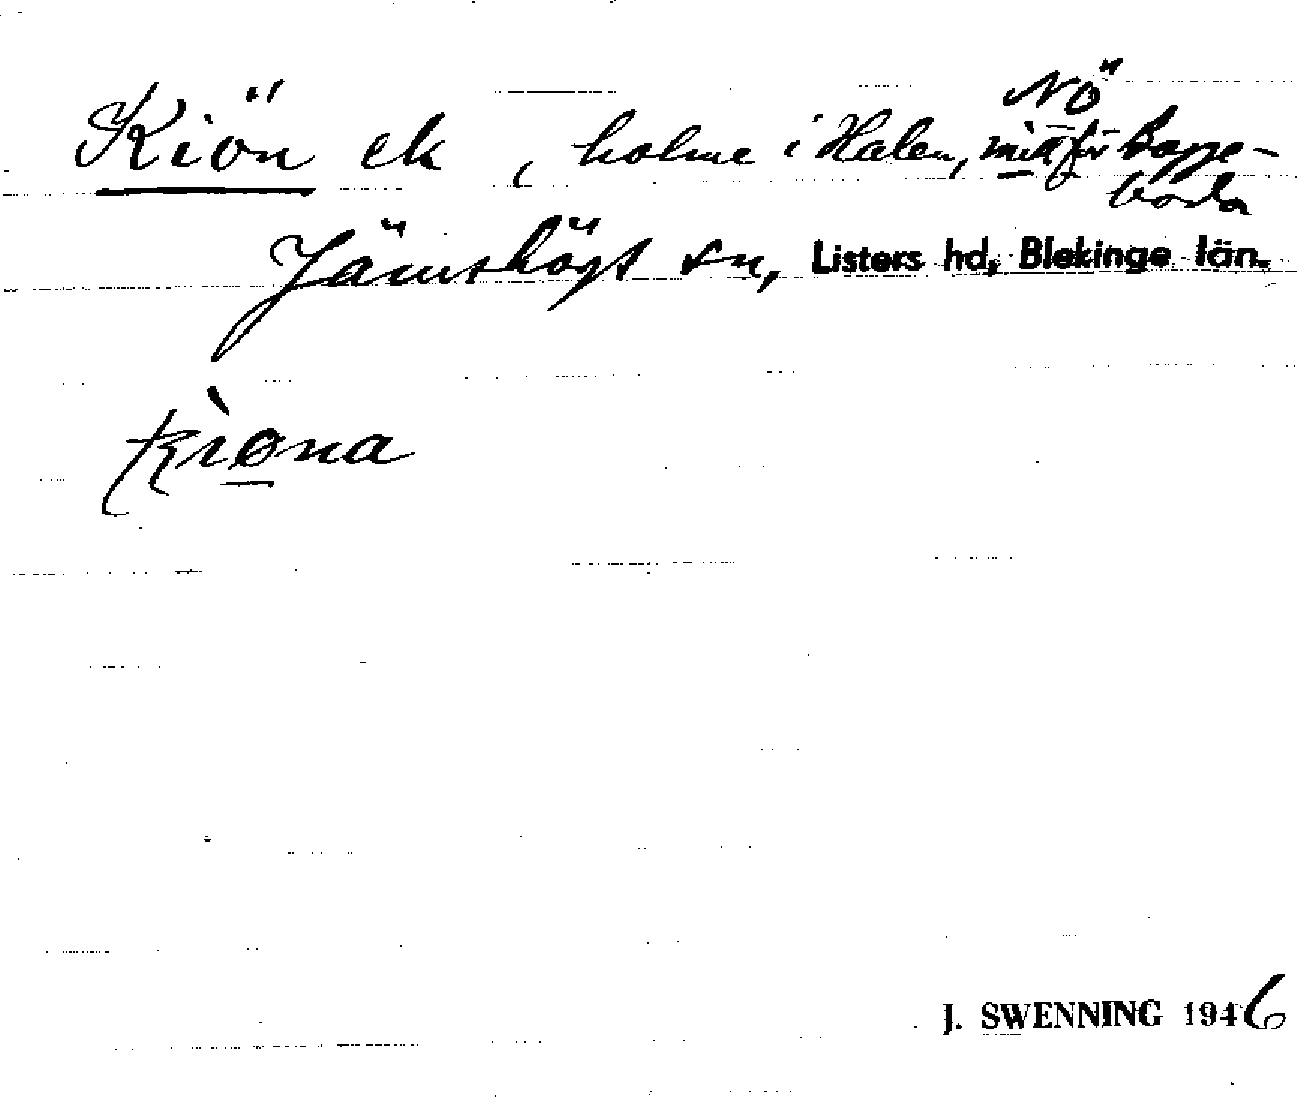 Kiön ek, holme i Halen, mitt för Boppe-
NÖ
boda
Jämshögs sn, Listers hd, Blekinge län.
kìøna
J. SWENNING 1946